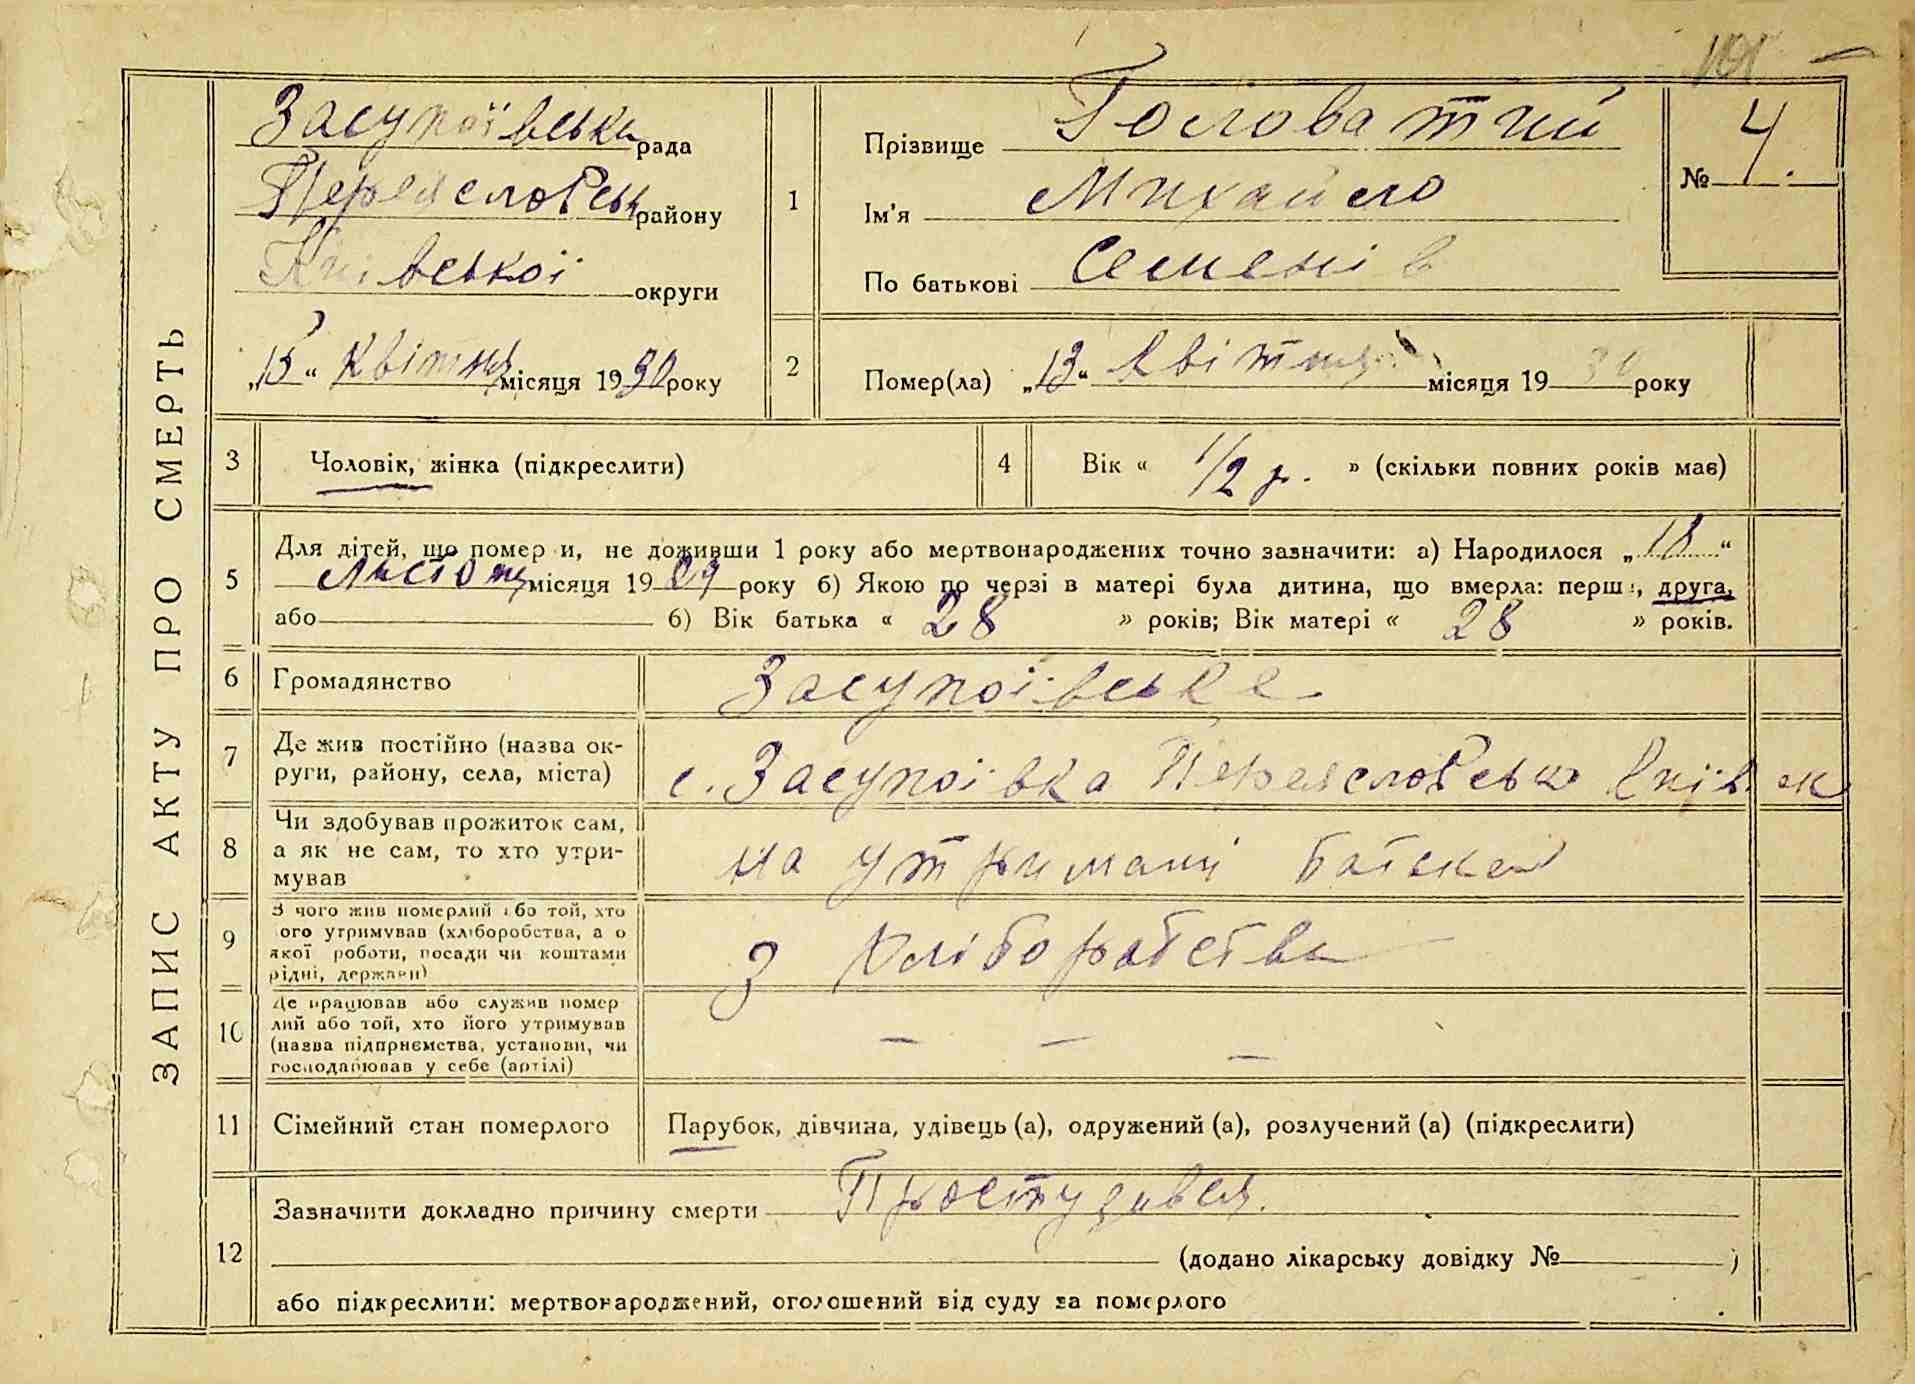 101
ЗАПИС АКТУ ПРО СМЕРТЬ
Засупоївська рада
Переясловськ району
Київської округи
„15“ квітня місяця 1930 року
1
Прізвище Головатий
Ім'я Михайло
По батькові Семенів
№ 4.
2
Помер(ла) „13“ квітня місяця 1930 року
3
Чоловік, жінка (підкреслити)
4
Вік « 1/2 р. » (скільки повних років має)
5
Для дітей, що помер и, не доживши 1 року або мертвонароджених точно зазначити: а) Народилося „18“
Листопа місяця 1929 року б) Якою по черзі в матері була дитина, що вмерла: перша, друга,
або б) Вік батька « 28 » років; Вік матері « 28 » років.
6
Громадянство
Засупоївське
7
Де жив постійно (назва ок-
руги, району, села, міста)
с. Засупоївка Переясловсько Київ
8
Чи здобував прожиток сам,
а як не сам, то хто утри-
мував
на утримані батьков
9
З чого жив померлий або той, хто
ого утримував (хліборобства, а о
якої роботи, посади чи коштами
рідні, держави)
З хліборобства
10
Де працював або служив помер
лий або той, хто його утримував
(назва підприємства, установи, чи
господарював у себе (артілі)
— — —
11
Сімейний стан померлого
Парубок, дівчина, удівець (а), одружений (а), розлучений (а) (підкреслити)
12
Зазначити докладно причину смерти Простудився.
(додано лікарську довідку № )
або підкреслити: мертвонароджений, оголошений від суду за померлого